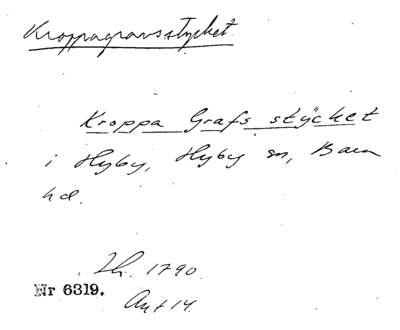 Kroppagravsstycket
Kroppa Grafs stÿcket
i Hyby, Hyby sn, Bara
hd.
Lh. 1790.
Nr 6319.
Akt 14.